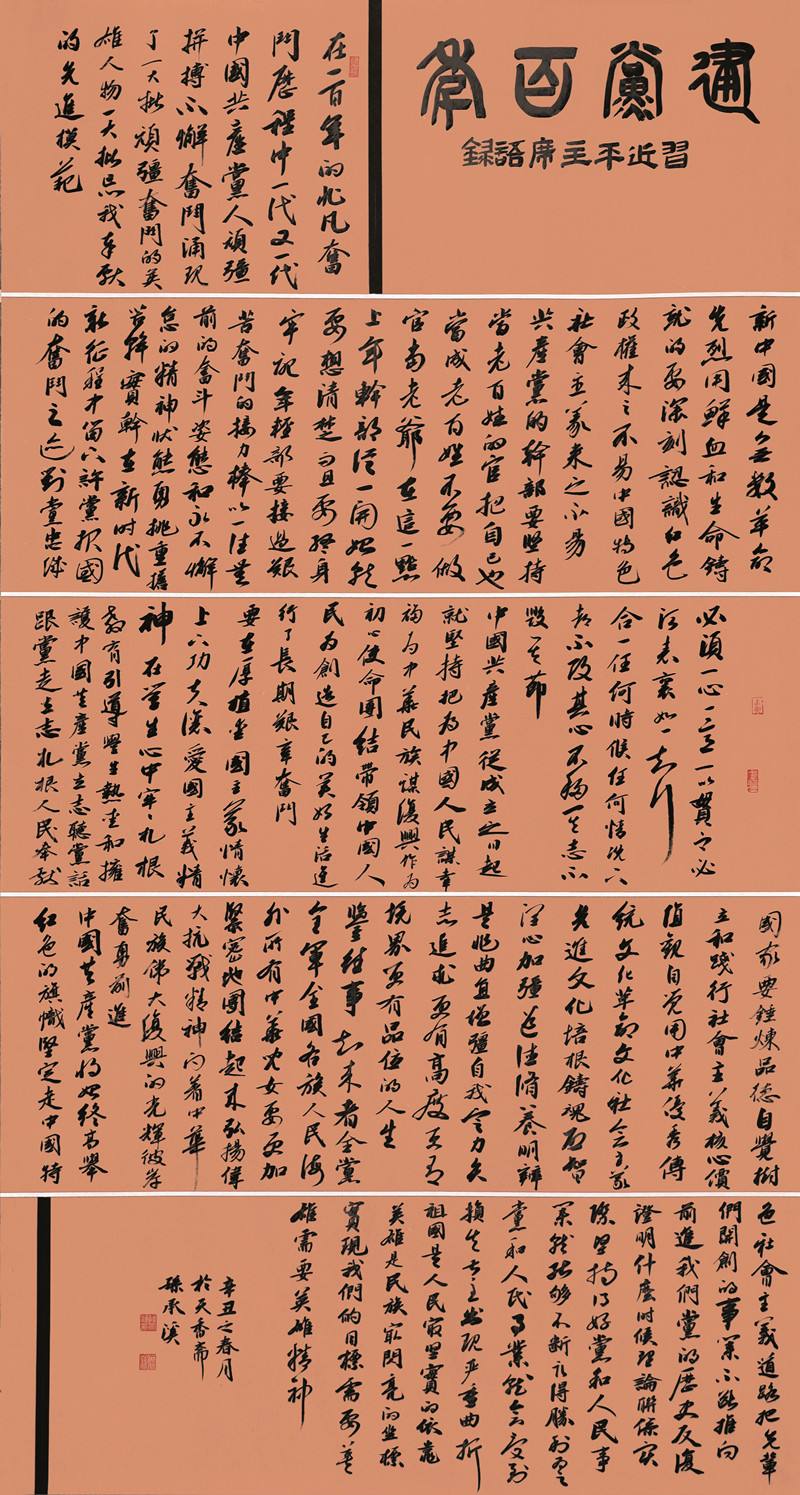 建黨百年
習近平主席語録
在一百年的非凡奮
鬥歷程中一代又一代
中國共產黨人頑強
拼搏不懈奮鬥涌現
了一大批頑疆奮鬥的英
雄人物一大批忘我奉獻
的先進模範
新中國是無數革命
先烈用鮮血和生命鑄
就的要深刻認識紅色
政權來之不易中國特色
社會主義來之不易
共產黨的幹部要堅持
當老百姓的官把自己也
當成老百姓不要做
官當老爺在這一點
上年幹部從一開始就
要想清楚而且要終身
牢記年輕部要接過艱
苦奮鬥的接力棒以一往無
前的奮斗姿態和永不懈
怠的精神狀態勇挑重擔
苦幹實幹在新時代
新征程中留下許黨報國
的奮鬥之迹對黨忠誠
必須一心一意一以貫之必
須表裏如一知行
合一任何時候任何情況下
都不改其心不移其志不
毀其節
中國共產黨從成立之日起
就堅持把为中國人民謀幸
福为中華民族謀復興作为
初心使命團結帶領中國人
民为創造自己的美好生活進
行了長期艱辛奮鬥
要在厚植爱國主義情懷
上下功夫讓愛國主義精
神在學生心中牢々扎根
教育引導學生熱愛和擁
護中國共產黨立志聽黨話
跟黨走立志扎根人民奉獻
國家要錘煉品德自覺樹
立和踐行社會主義核心價
值觀自覺用中華優秀傳
統文化革命文化社会主義
先進文化培根鑄魂啟智
潤心加強道德脩養明辨
是非曲直增疆自我定力矢
志追求更有高度更有
境界更有品位的人生
鑒往事知来者全黨
全軍全國各族人民海
外所有中華兒女要更加
緊密地團結起来弘揚偉
大抗戰精神向着中華
民族偉大復興的光輝彼岸
奮勇前進
中國共產黨將始終高舉
紅色的旗幟堅定走中國特
色社會主義道路把先輩
們開創的事業不斷推向
前進我們黨的歷史反復
證明什麼时候理論聯係实
際堅持得好黨和人民事
業就能够不斷取得勝利反之
黨和人民事業就会受到
損失甚至出現严重曲折
祖國是人民最堅實的依靠
英雄是民族最閃亮的坐標
實現我們的目標需要英
雄需要英雄精神
辛丑之春月
於天香齋
孫承溪